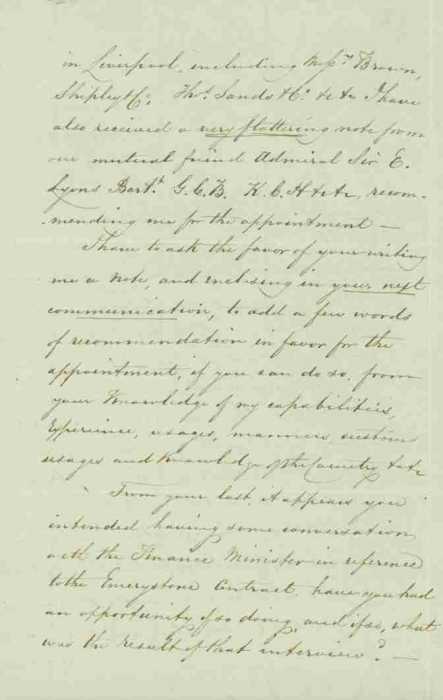 in Liverpool, including Messrs Brown,
Shipley & Co. Thos. Sands & Co. &c &c I have
also received a very flattering note from
our mutual friend Admiral Sir E.
Lyons Bart. G.C.B. K.C.H &c &c, recom-
mending me for the appointment —
I have to ask the favor of your writing
me a note, and enclosing in your next
communication, to add a few words
of recommendation in favor for the
appointment, if you can do so, from
your Knowledge of my capabilities,
experience, usages, manners customs
usages and Knowledge of the Country &c &c
From your last, it appears you
intended having some conversation
with the Finance Minister in reference
to the Emerystone Contract. have you had
an opportunity of so doing, and if so, what
was the result of that interview? —